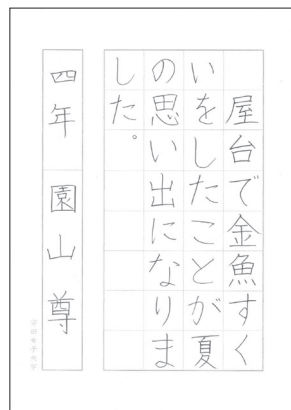 屋台で金魚すく
いをしたことが夏
の思い出になりま
した。
四年 園山尊